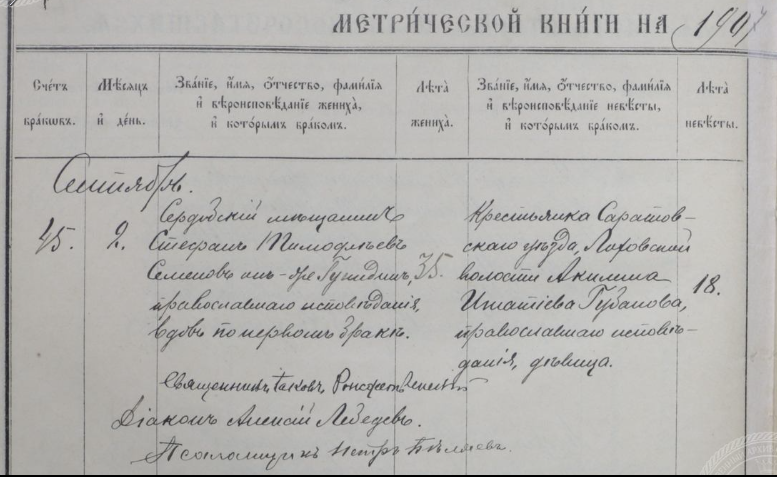 МЕТРИ́ЧЕСКОЙ КНИ́ГИ НА 1907
Сче́тъ бра́кωвъ.
Мѣ́сѧцъ и҆ де́нь.
Зва́нїе, и҆́мѧ, ѻ҆́тчество, фами́лїѧ и҆ вѣроисповѣ́данїе жениха̀, и҆ кото́рымъ бра́комъ.
Лѣ́та жениха̀.
Зва́нїе, и҆́мѧ, ѻ҆́тчество, фами́лїѧ и҆ вѣроисповѣ́данїе невѣ́сты, и҆ кото́рымъ бра́комъ.
Лѣ́та невѣ́сты.
Сентябрь.
45.
2.
Сердобскiй мѣщанинъ
Стефанъ Тимофеевъ
Семеновъ онъ-же
православнаго исповѣданiя,
вдовъ по первомъ бракѣ.
35.
Крестьянка Саратов-
скаго уѣзда,
волости Акилина
Игнатiева Губанова,
православнаго исповѣ-
данiя, дѣвица.
18.
Священникъ Iаковъ
Дiаконъ Алексiй Лебедевъ.
Псаломщикъ Петръ Бѣляевъ.